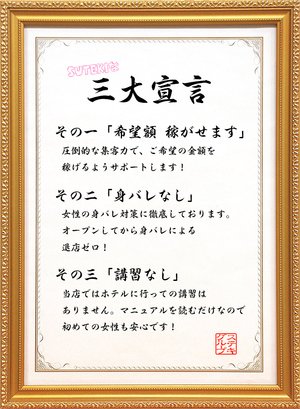 SUTEKIな
三大宣言
その一「希望額 稼がせます」
圧倒的な集客力で、ご希望の金額を
稼げるようサポートします!
その二「身バレなし」
女性の身バレ対策に徹底しております。
オープンしてから身バレによる
退店ゼロ!
その三「講習なし」
当店ではホテルに行っての講習は
ありません。マニュアルを読むだけなので
初めての女性も安心です!
ステキ
グループ